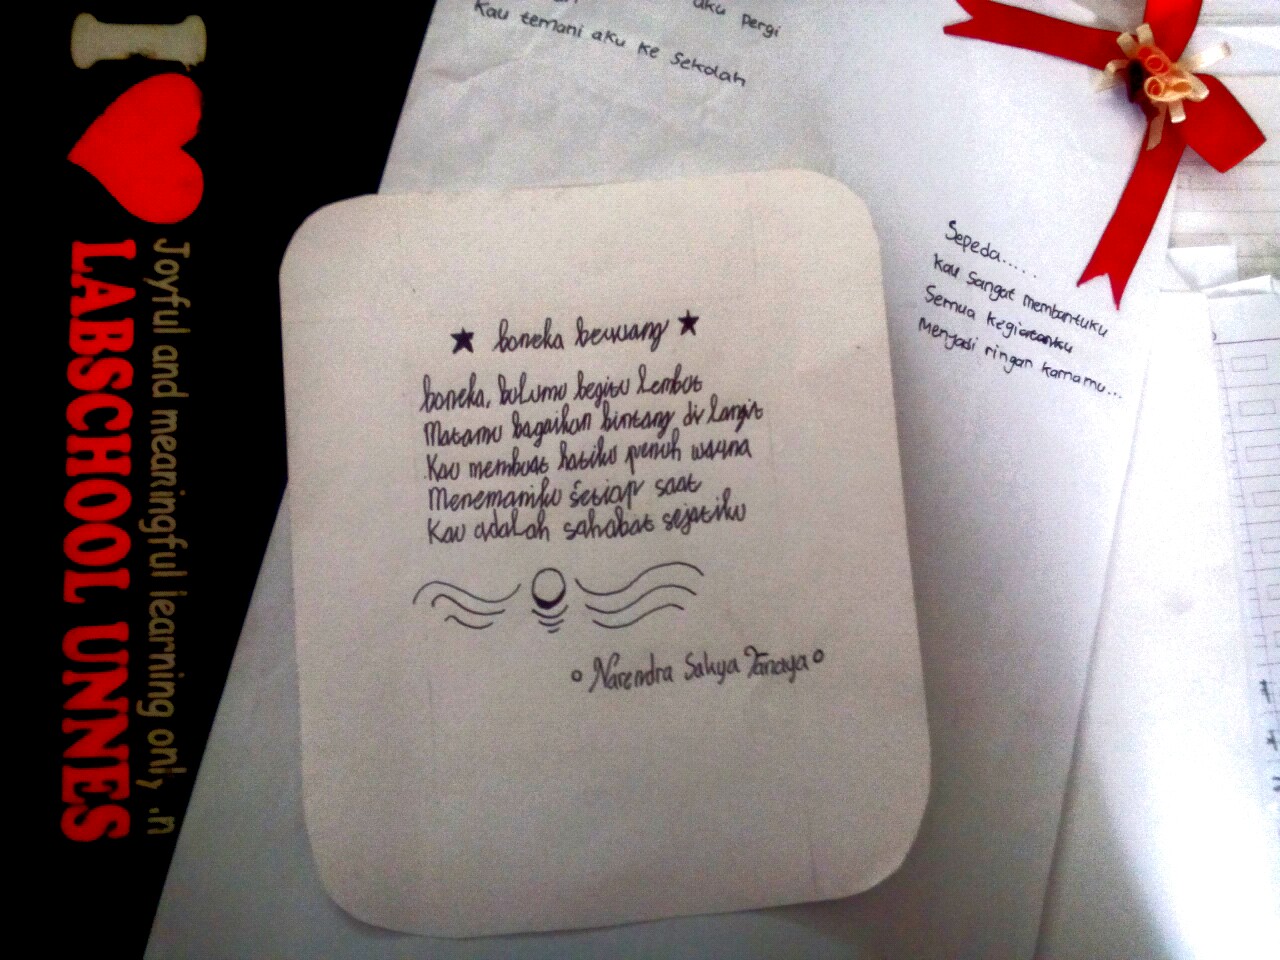 I ❤
LABSCHOOL UNNES
Joyful and meaningful learning only in
aku pergi
Kau temani aku ke Sekolah
★ boneka beruang ★
boneka, bulumu begitu lembut
Matamu bagaikan bintang di langit
Kau membuat hatiku penuh warna
Menemaniku setiap saat
Kau adalah sahabat sejatiku
Narendra Sakya Tanaya
Sepeda.....
Kau sangat membantuku
Semua kegiatanku
Menjadi ringan karnamu...